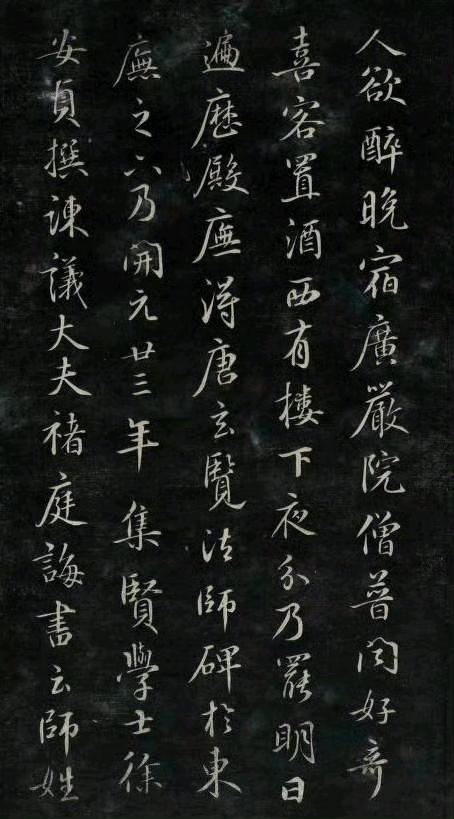 人欲醉晚宿廣嚴院僧普闻好奇
喜客置酒西有樓下夜分乃罷明日
遍歷殿廡得唐玄覽法師碑於東
廡之六乃開元廿三年 集賢學士徐
安貞撰諫議大夫褚庭誨書云師姓